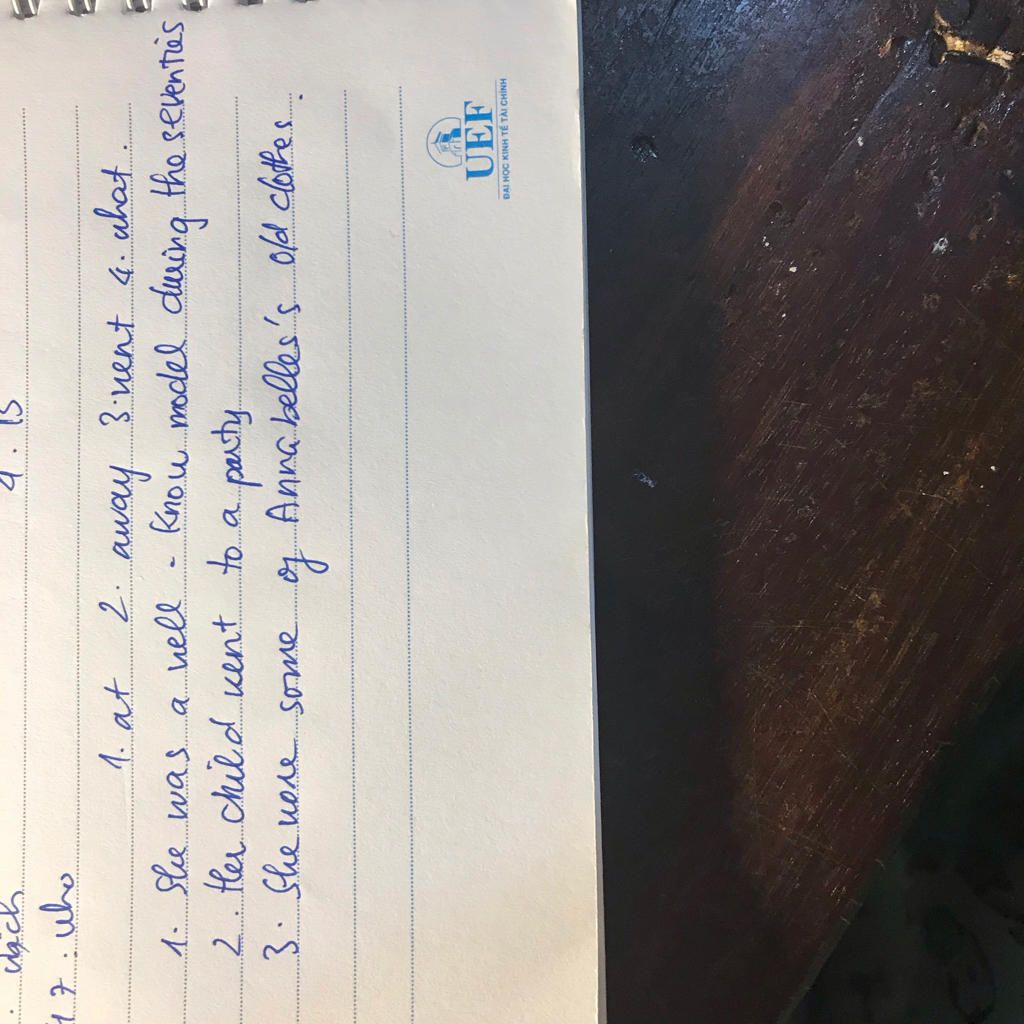 4. B
which
47. who
1. at 2. away 3. went 4. what.
1. She was a well-know model during the seventies
2. Her child went to a party
3. She wore some of Annabelles's old clothes.
UEF
ĐẠI HỌC KINH TẾ TÀI CHÍNH